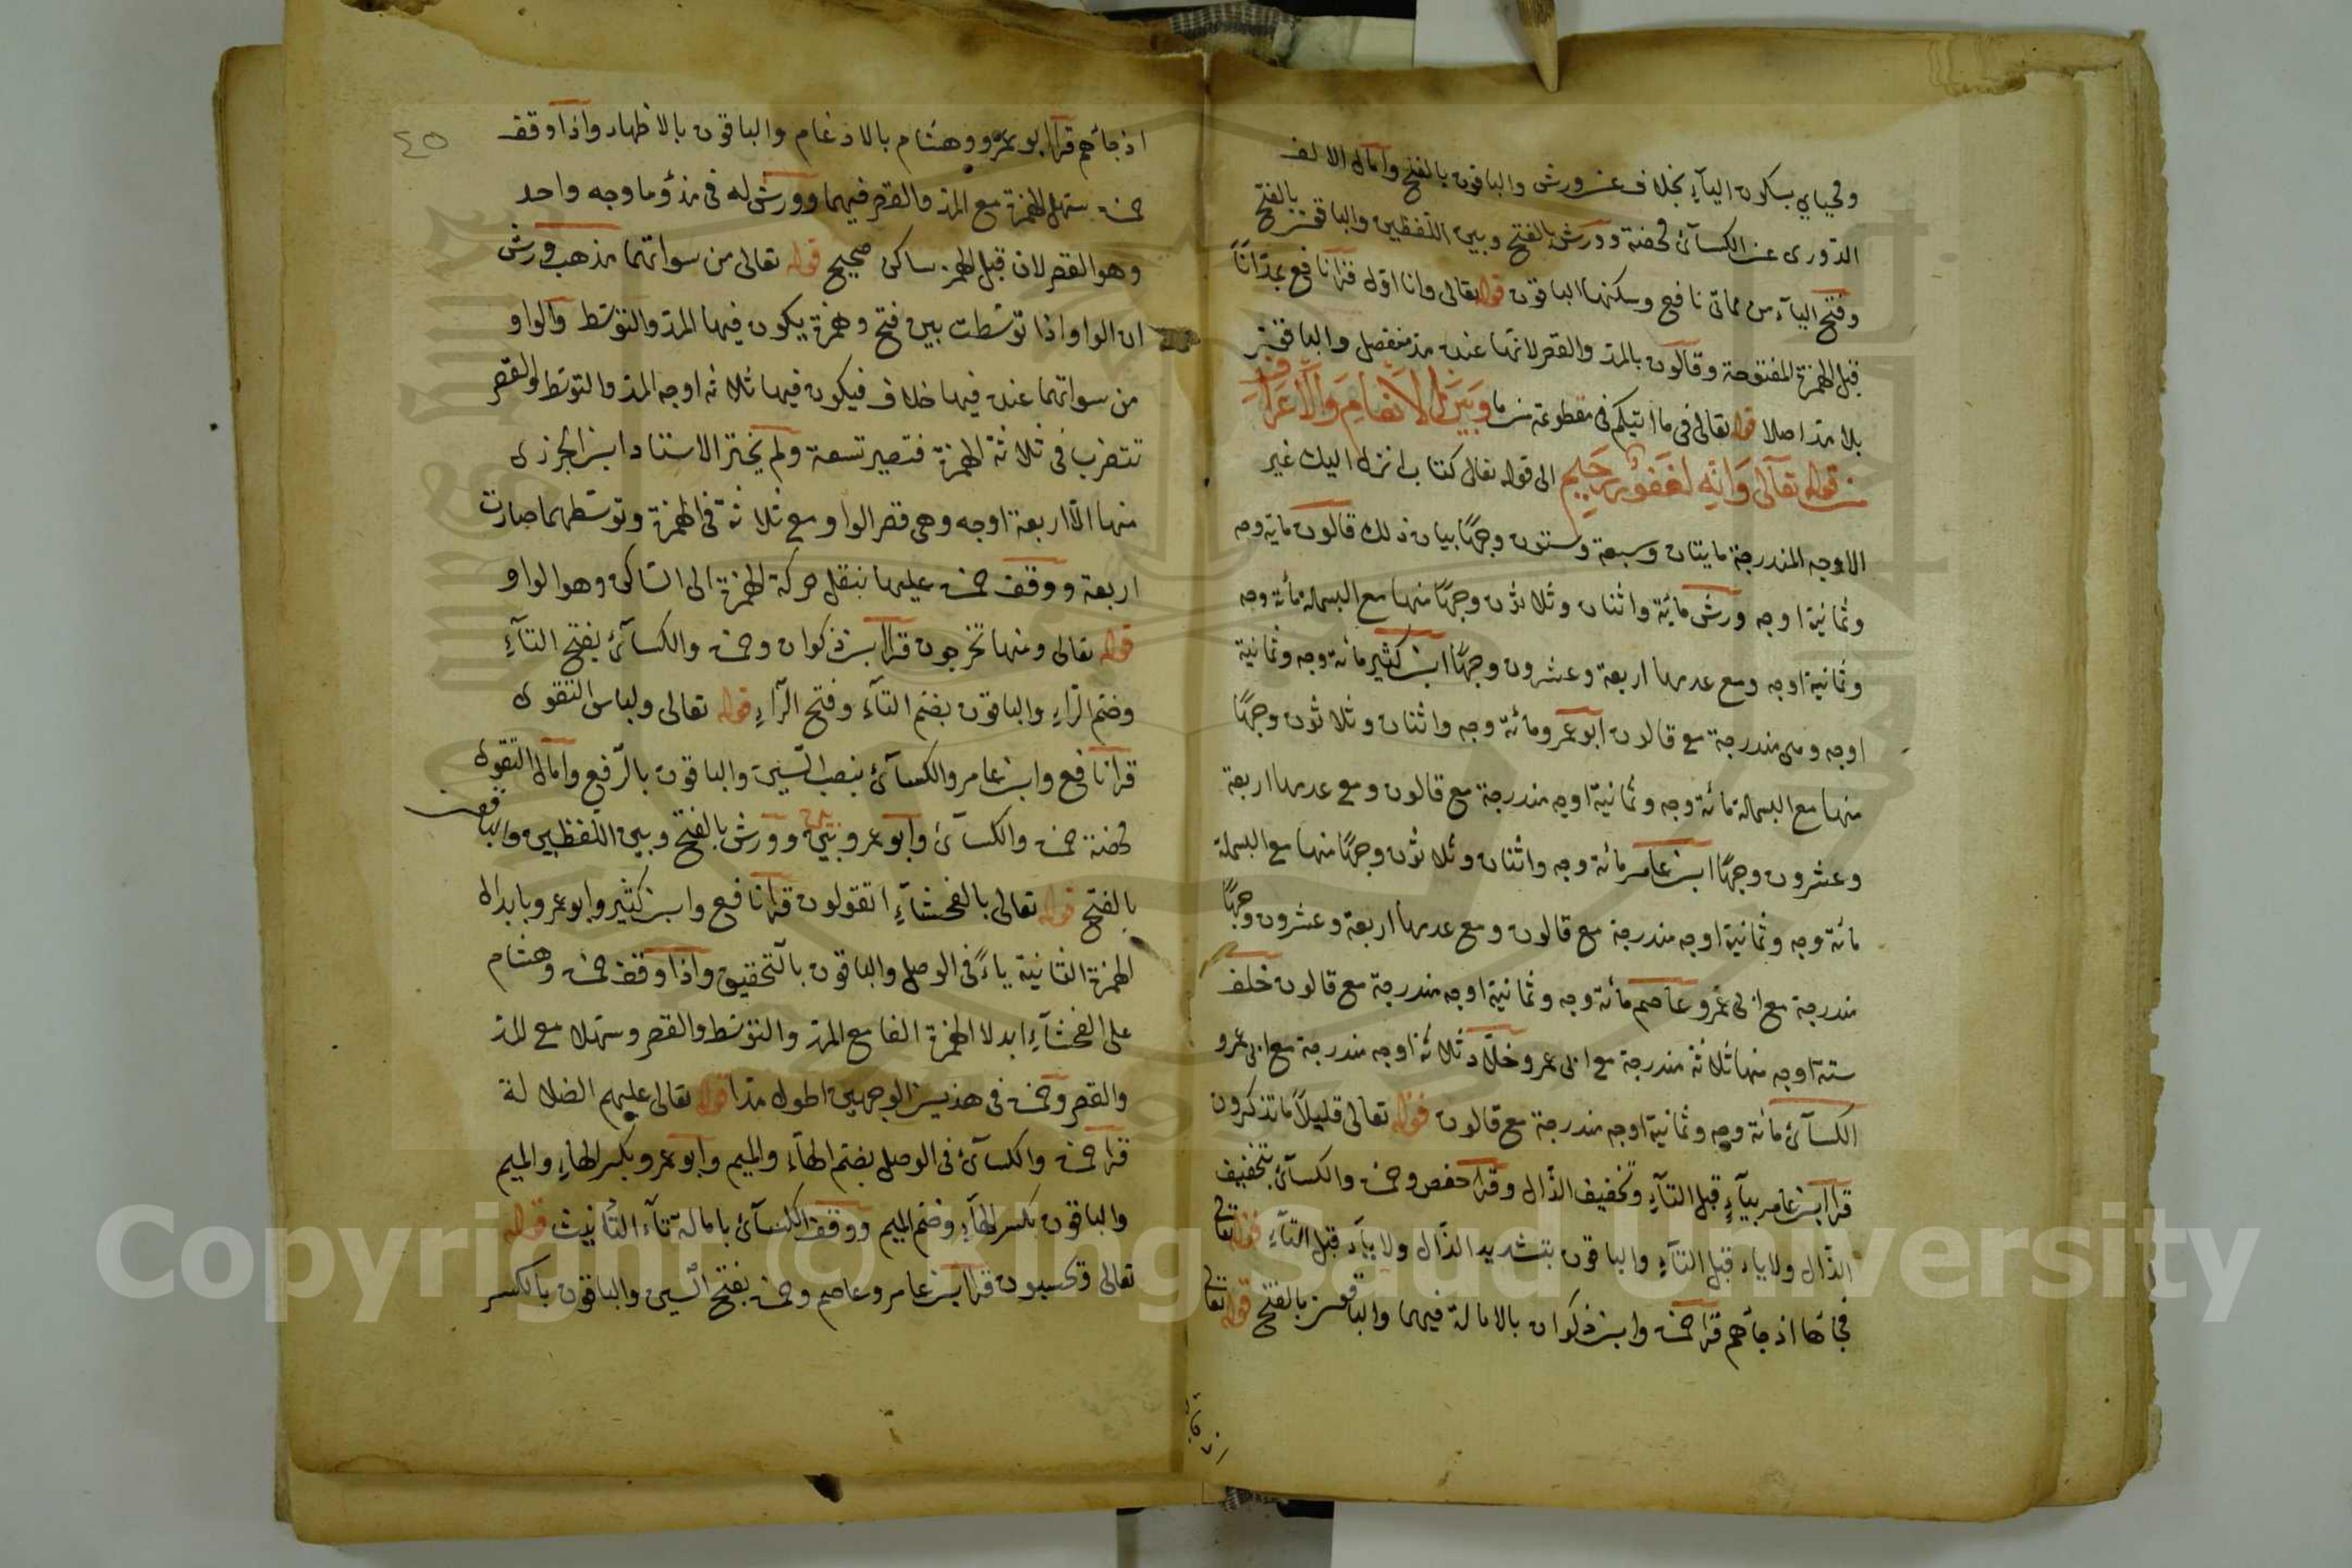 ومحياي بسكون الياء بخلاف عن ورش والباقون بالفتح وامال الالف
الدوري عن الكسائى محضة وورش بالفتح وبين اللفظين والباقون بالفتح
وفتح الياء من مماتى نافع وسكنها الباقون قوله تعالى وانا اول قرا نافع بمد انا
قبل الهمزة المفتوحة وقالون بالمد والقصر لانها عنده مد منفصل والباقون
بلا مد اصلا قوله تعالى فى ما اتيكم فى مقطوعة من ما وبين الانعام والاعراف
من قوله تعالى وانه لغفور رحيم الى قوله تعالى كتاب انزل اليك غير
الاوجه المندرجة مايتان وسبعة وستون وجها بيان ذلك قالون مايه وجه
وثمانية اوجه ورش مائة واثنان وثلاثون وجها منها مع البسملة مائة وجه
وثمانية اوجه ومع عدمها اربعة وعشرون وجها ابن كثير مائة وجه وثمانية
اوجه وهى مندرجة مع قالون ابو عمرو مائة وجه واثنان وثلاثون وجها
منها مع البسملة مائة وجه وثمانية اوجه مندرجة مع قالون ومع عدمها اربعة
وعشرون وجها ابن عامر مائة وجه واثنان وثلاثون وجها منها مع البسملة
مائة وجه وثمانية اوجه مندرجة مع قالون ومع عدمها اربعة وعشرون وجها
مندرجة مع ابى عمرو عاصم مائة وجه وثمانية اوجه مندرجة مع قالون خلف
ستة اوجه منها ثلاثة مندرجة مع ابى عمرو خلاد ثلاثة اوجه مندرجة مع ابى عمرو
الكسائى مائة وجه وثمانية اوجه مندرجة مع قالون قوله تعالى قليلا ما تذكرون
قرا ابن عامر بياء قبل التاء وتخفيف الذال وقرا حفص وحمزة والكسائى بتخفيف
الذال ولا ياء قبل التاء والباقون بتشديد الذال ولا ياء قبل التاء قوله تعالى
فجاءها اذ جاءهم قرا حمزة وابن ذكوان بالامالة فيهما والباقون بالفتح قوله تعالى
٤٥
اذ جاءهم قرا ابو عمرو وهشام بالادغام والباقون بالاظهار واذا وقف
حمزة سهل الهمزة مع المد والقصر فيهما وورش له فى مذؤما وجه واحد
وهو القصر لان قبل الهمز ساكن صحيح قوله تعالى من سواتهما مذهب ورش
ان الواو اذا توسطت بين فتح وهمزة يكون فيها المد والتوسط والواو
من سواتهما عنده فيها خلاف فيكون فيها ثلاثة اوجه المد والتوسط والقصر
تتضرب فى ثلاثة الهمزة فتصير تسعة ولم يختر الاستاد ابن الجزرى
منها الا اربعة اوجه وهى قصر الواو مع ثلاثة فى الهمزة وتوسطهما صارت
اربعة ووقف حمزة عليها بنقل حركة الهمزة الى الساكن وهو الواو
قوله تعالى ومنها تخرجون قرا ابن ذكوان وحمزة والكسائى بفتح التاء
وضم الراء والباقون بضم التاء وفتح الراء قوله تعالى ولباس التقوى
قرا نافع وابن عامر والكسائى بنصب السين والباقون بالرفع وامال التقوى
محضة حمزة والكسائى وابو عمرو بين بين وورش بالفتح وبين اللفظين والباقون
بالفتح قوله تعالى بالفحشاء اتقولون قرا نافع وابن كثير وابو عمرو بابدال
الهمزة الثانية ياء فى الوصل والباقون بالتحقيق واذا وقف حمزة وهشام
على الفحشاء ابدلا الهمزة الفا مع المد والتوسط والقصر وسهلا مع المد
والقصر وحمزة فى هذين الوجهين اطول مدا قوله تعالى عليهم الضلالة
قرا حمزة والكسائى فى الوصل بضم الهاء والميم وابو عمرو بكسر الهاء والميم
والباقون بكسر الهاء وضم الميم ووقف الكسائى بامالة تاء التأنيث قوله
تعالى وتحسبون قرا ابن عامر وعاصم وحمزة بفتح السين والباقون بالكسر
Copyright © King Saud University